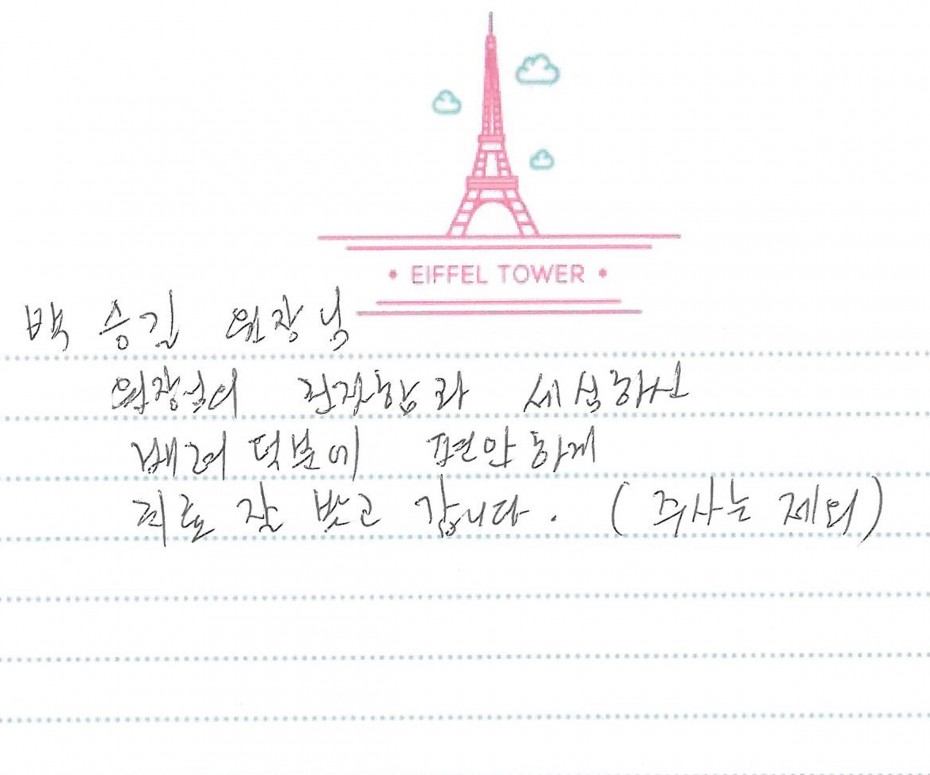 • EIFFEL TOWER •
백 승길 원장님
원장님의 친절함과 세심하신
배려 덕분에 편안하게
치료 잘 받고 갑니다. (주사는 제외)